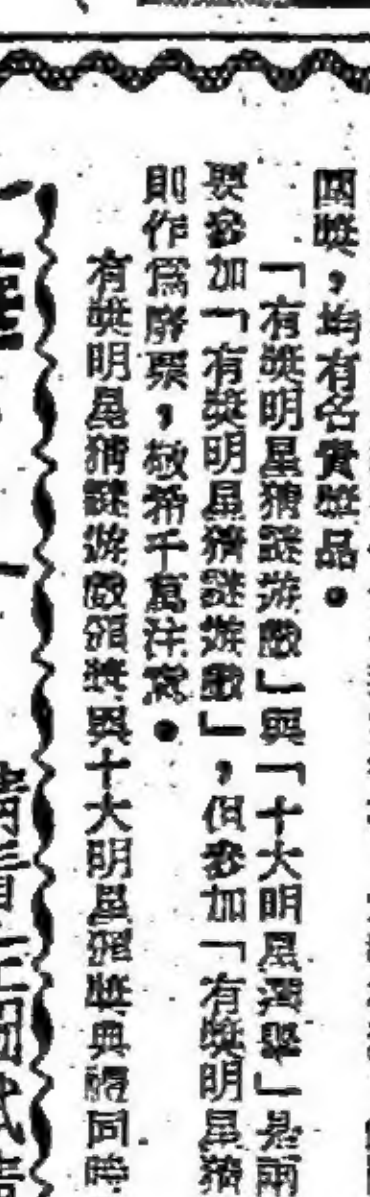 獎，均有名貴獎品。
「有獎明星猜謎游戲」與「十大明星選舉」是兩
要參加「有獎明星猜謎游戲」，但參加「有獎明星猜
則作為廢票，敬希千萬注意。
有獎明星猜謎游戲頒獎與十大明星頒獎典禮同時